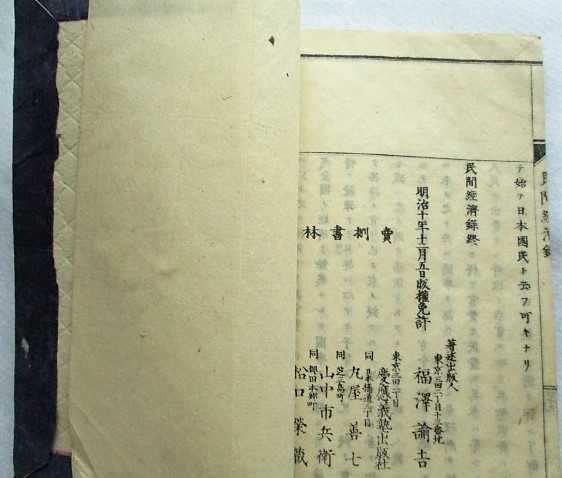 民間經濟録
テ始テ日本國民ト云フ可キナリ
民間經濟録終
明治十年十二月五日版權免許
著述出版人
東京三田二丁目十三番地
福澤諭吉
賣捌書林
東京三田二丁目
慶應義塾出版社
同 日本橋通三丁目
丸屋善七
同 芝三島町
山中市兵衛
同